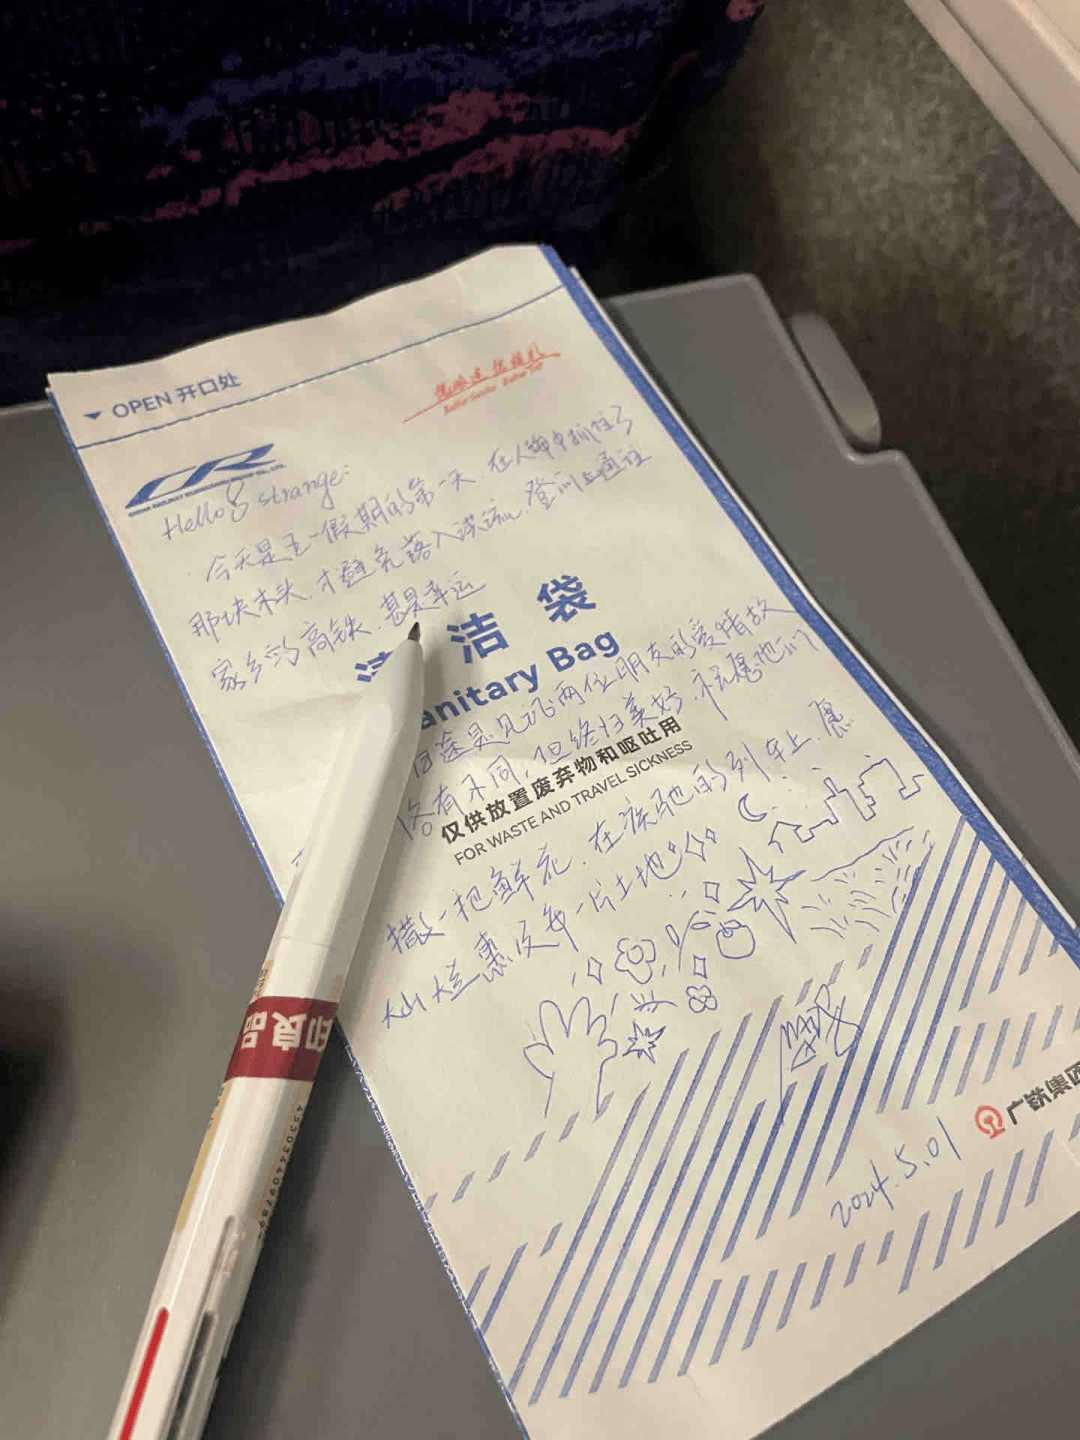 OPEN 开口处
CR
Hello strange:
今天是五一假期的第一天.在人海中抓住了
那块木头.才避免落入洪流.登上通往
家乡的高铁.甚是幸运
洁 袋
anitary Bag
归途是见证两位朋友的爱情故
各有不同,但终归美好.祝愿她们
仅供放置废弃物和呕吐用
FOR WASTE AND TRAVEL SICKNESS
撒一把鲜花.在疾驰的列车上.愿
灿烂惠及每一片土地
印良品
4550344097892
广铁集团
2024.5.01